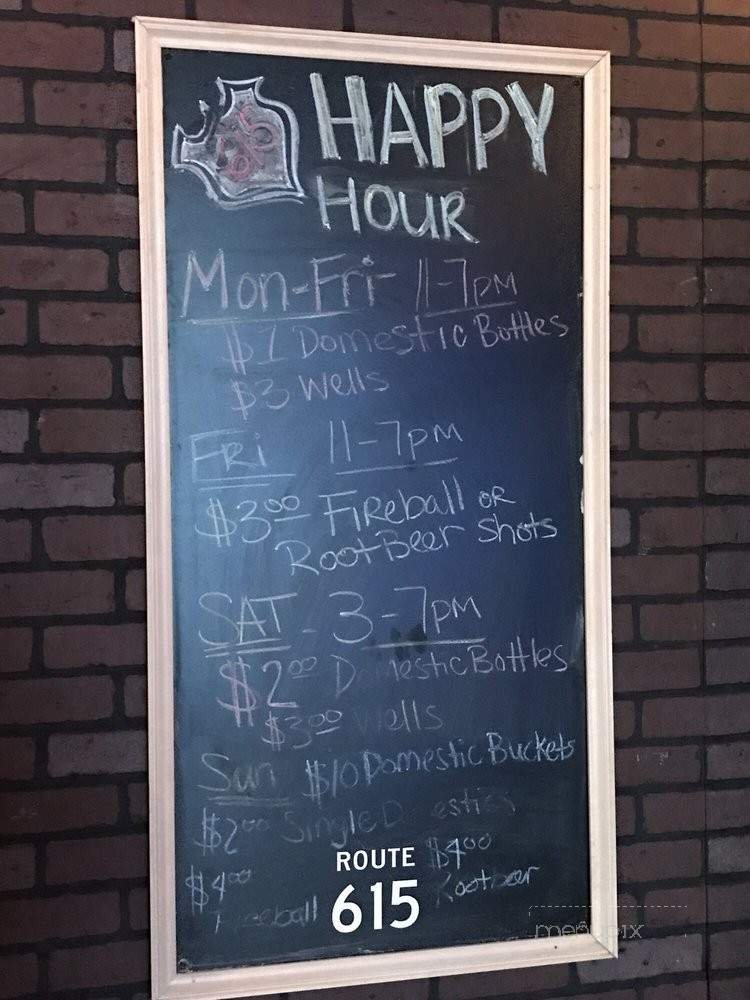 HAPPY
HOUR
Mon-Fri 11-7pm
$1 Domestic Bottles
$3 Wells
FRi 11-7pm
$3.00 FiReball OR
RootBeer Shots
SAT - 3-7pm
$2.00 Domestic Bottles
$3.00 Wells
Sun $10 Domestic Buckets
$2.00 Single Domestics
$4.00 $4.00
Fireball Rootbeer
ROUTE
615
menupix